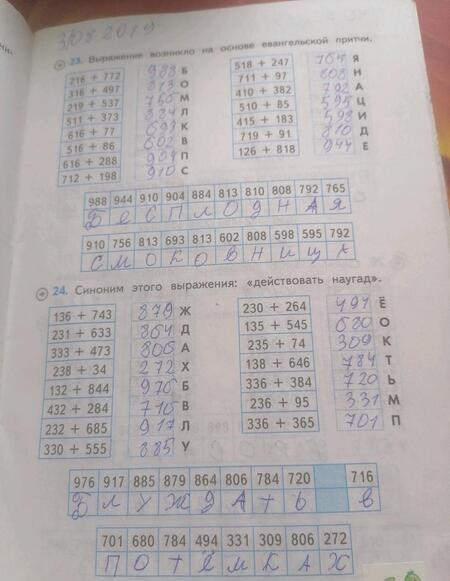 23. Выражение возникло на основе евангельской притчи.
216 + 772 988 Б
316 + 497 813 О
219 + 537 756 М
511 + 373 884 Л
616 + 77 693 К
516 + 86 602 В
616 + 288 904 П
712 + 198 910 С
518 + 247 765 Я
711 + 97 808 Н
410 + 382 792 А
510 + 85 595 Ц
415 + 183 598 И
719 + 91 810 Д
126 + 818 944 Е
988 944 910 904 884 813 810 808 792 765
Б Е С П Л О Д Н А Я
910 756 813 693 813 602 808 598 595 792
С М О К О В Н И Ц А
24. Синоним этого выражения: «действовать наугад».
136 + 743 879 Ж
231 + 633 864 Д
333 + 473 806 А
238 + 34 272 Х
132 + 844 976 Б
432 + 284 716 В
232 + 685 917 Л
330 + 555 885 У
230 + 264 494 Ё
135 + 545 680 О
235 + 74 309 К
138 + 646 784 Т
336 + 384 720 Ь
236 + 95 331 М
336 + 365 701 П
976 917 885 879 864 806 784 720 716
Б Л У Ж Д А Т Ь В
701 680 784 494 331 309 806 272
П О Т Ё М К А Х